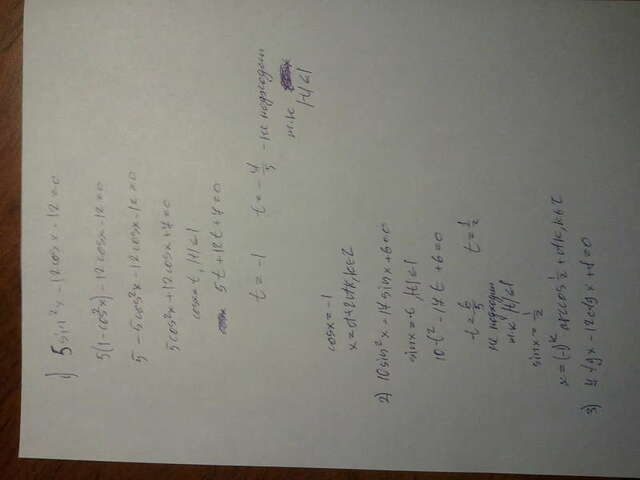 1) 5 sin²x - 12cosx - 12 = 0
5(1-cos²x) - 12cosx - 12 = 0
5 - 5cos²x - 12cosx - 12 = 0
5cos²x + 12cosx + 7 = 0
cosx = t, |t| ≤ 1
5t + 12t + 7 = 0
t = -1 t = - 7/5 - не подходит
т.к |t| ≤ 1
cosx = -1
x = π + 2πk, k ∈ Z
2) 10sin²x - 17sinx + 6 = 0
sinx = t, |t| ≤ 1
10t² - 17t + 6 = 0
t = 6/5 t = 1/2
не подходит
т.к |t| ≤ 1
sinx = 1/2
x = (-1)^k arccos 1/2 + πk, k ∈ Z
3) 4tgx - 12ctgx + 1 = 0